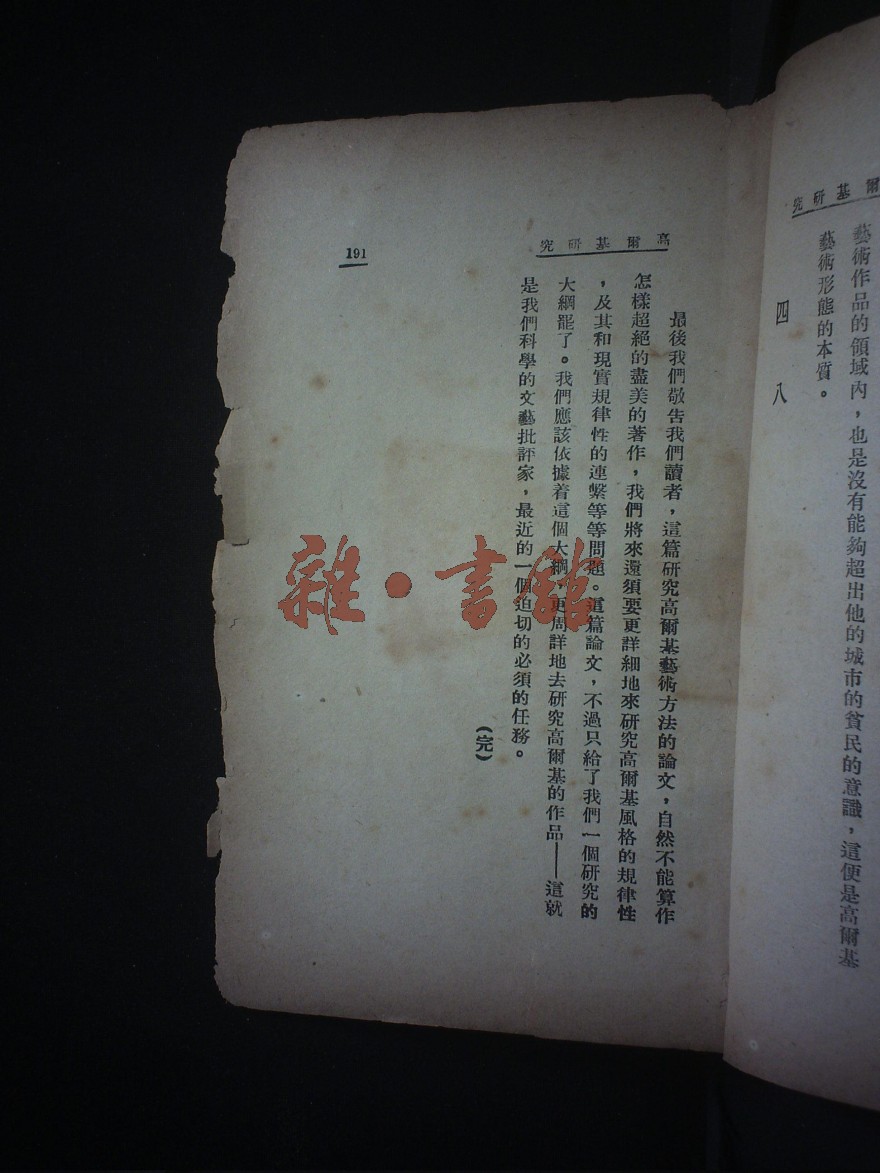 爾基研究
藝術作品的領域內，也是沒有能夠超出他的城市的貧民的意識，這便是高爾基
藝術形態的本質。
四八
高爾基研究
最後我們敬告我們讀者，這篇研究高爾基藝術方法的論文，自然不能算作
怎樣超絕的盡美的著作，我們將來還須要更詳細地來研究高爾基風格的規律性
，及其和現實規律性的連繫等等問題。這篇論文，不過只給了我們一個研究的
大綱罷了。我們應該依據着這個大綱，更周詳地去研究高爾基的作品——這就
是我們科學的文藝批評家，最近的一個迫切的必須的任務。
（完）
191
雜·書館